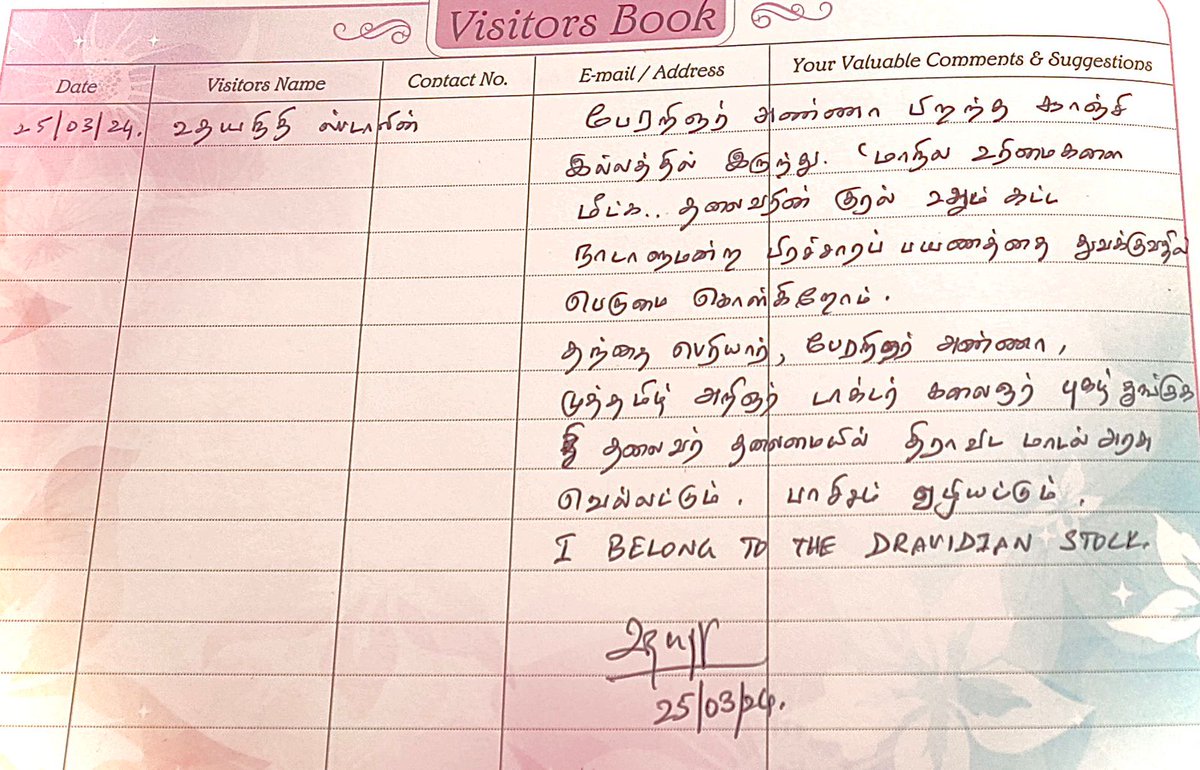 Visitors Book
Date Visitors Name Contact No. E-mail / Address Your Valuable Comments & Suggestions
25/03/24. உதயநிதி ஸ்டாலின் பேரறிஞர் அண்ணா பிறந்த காஞ்சி
இல்லத்தில் இருந்து. 'மாநில உரிமைகளை
மீட்க.. தலைவரின் குரல் உதும் கட்ட
நாடாளுமன்ற பிரச்சாரப் பயணத்தை துவக்குவதில்
பெருமை கொள்கிறோம்.
தந்தை பெரியார், பேரறிஞர் அண்ணா,
முத்தமிழ் அறிஞர் டாக்டர் கலைஞர் புகழ்
தலைவர் தலைமையில் திராவிட மாடல் அரசு
வெல்லட்டும். பாசிசம் ஒழியட்டும்.
I BELONG TO THE DRAVIDIAN STOCK.
25/03/24.